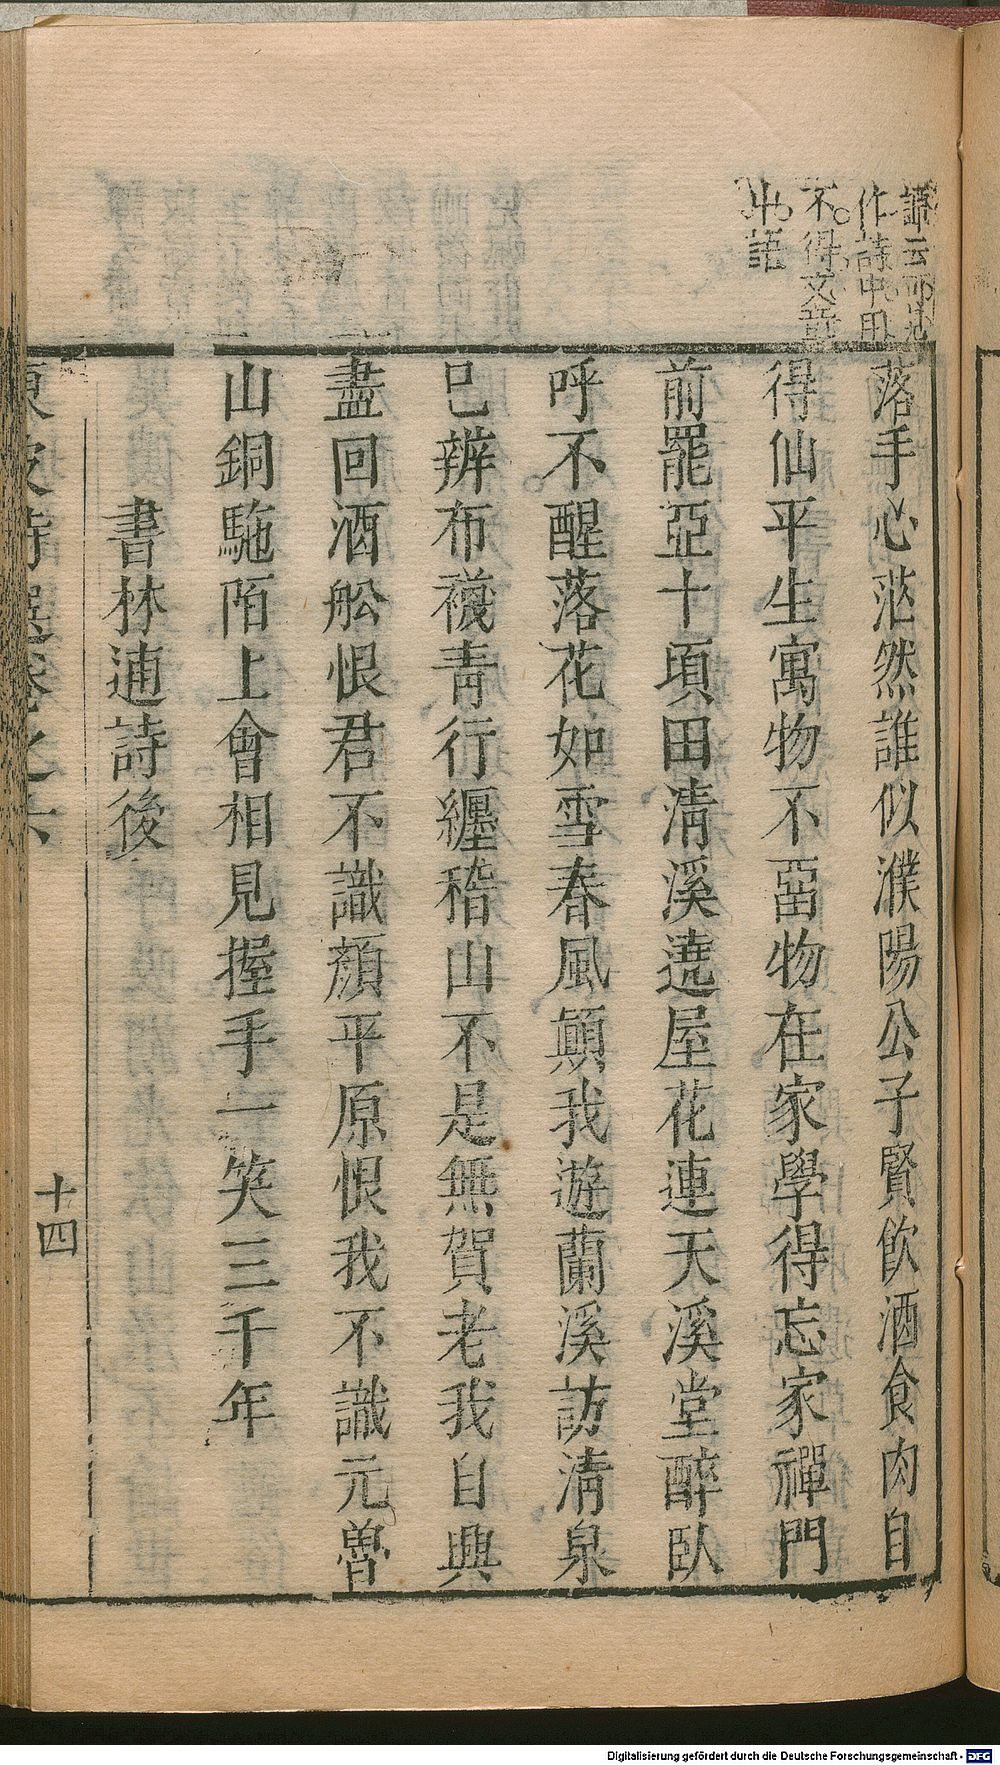 譚云即是
作詩中用
不得文章
中語
落手心茫然誰似濮陽公子賢飲酒食肉自
得仙平生寓物不畱物在家學得忘家禪門
前罷亞十頃田清溪遶屋花連天溪堂醉臥
呼不醒落花如雪春風顛我遊蘭溪訪清泉
已辨布襪青行纏稽山不是無賀老我自興
盡回酒舩恨君不識顏平原恨我不識元魯
山銅駞陌上會相見握手一笑三千年
書林逋詩後
東坡詩選卷之六
十四
Digitalisierung gefördert durch die Deutsche Forschungsgemeinschaft - DFG